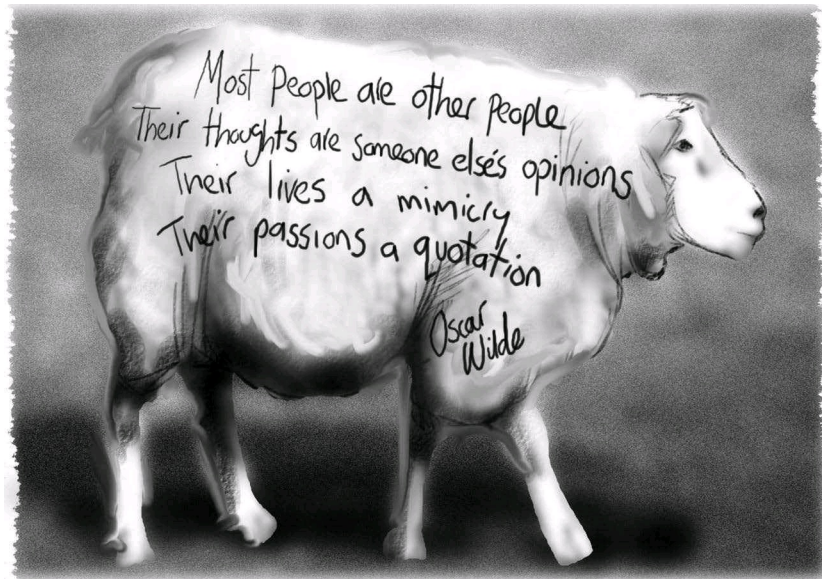 Most people are other people
Their thoughts are someone else's opinions
Their lives a mimicry
Their passions a quotation
Oscar
Wilde